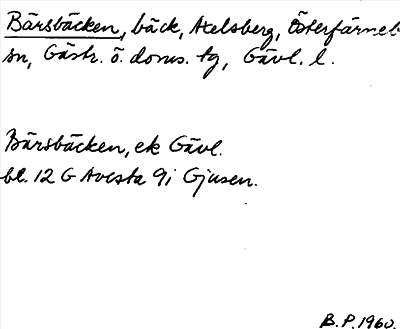 Bärsbäcken, bäck, Axelsberg, Österfärneb
sn, Gästr. ö. doms. tg, Gävl. l.
Bärsbäcken, ek Gävl.
bl. 12 G Avesta 9i Gjusen.
B.P. 1960.